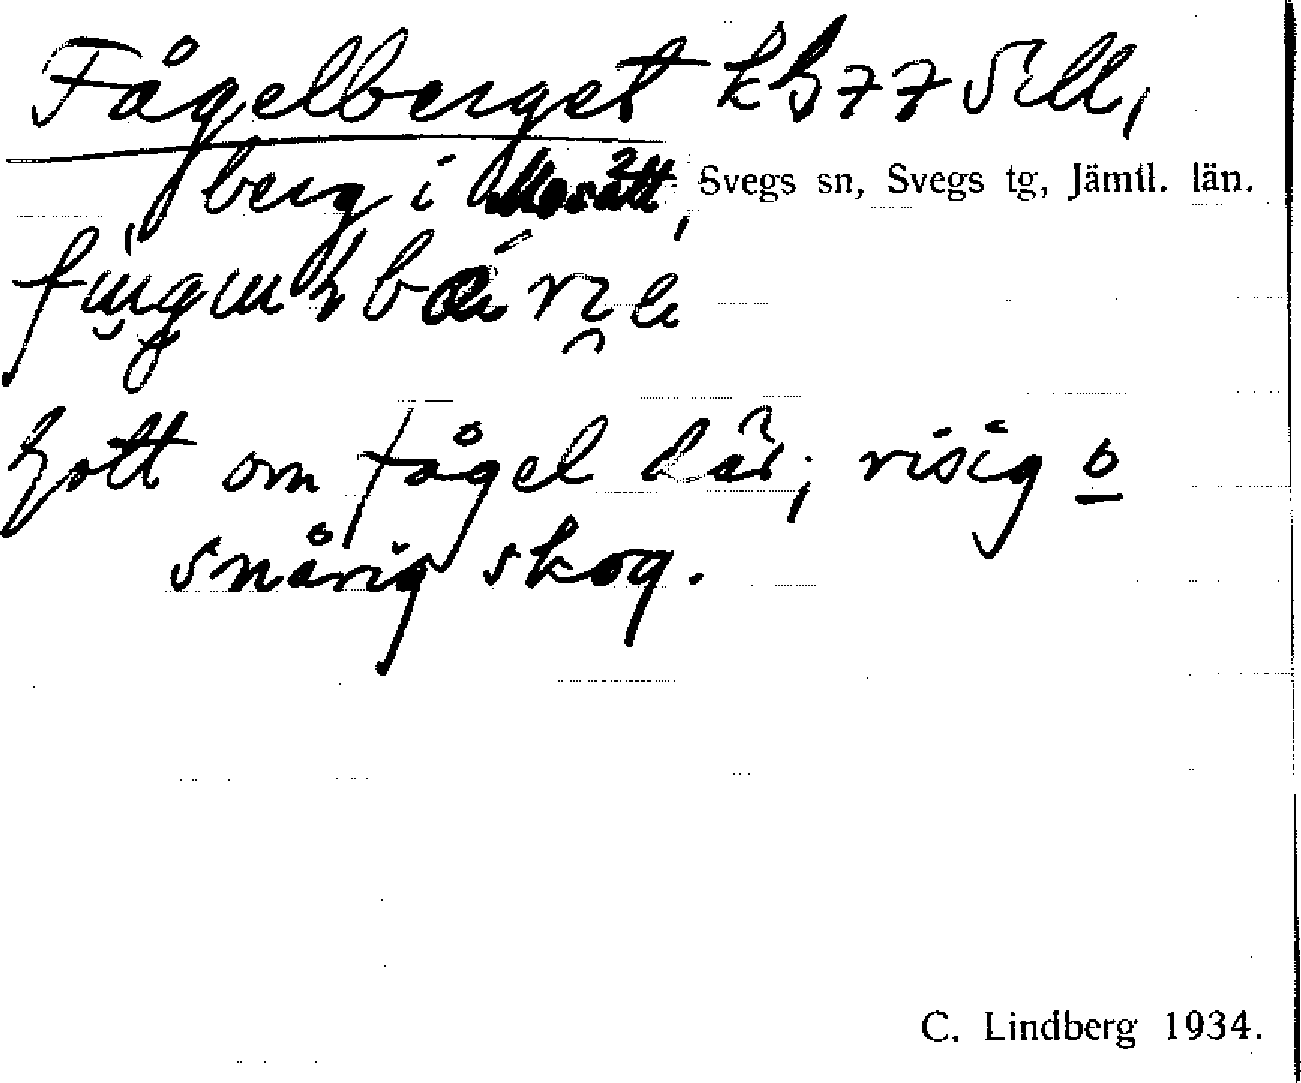 Fågelberget kb 77 Sill,
berg i Mosätt, Svegs sn, Svegs tg, Jämtl. län.
Gott om fågel där; risig o
snårig skog.
C. Lindberg 1934.